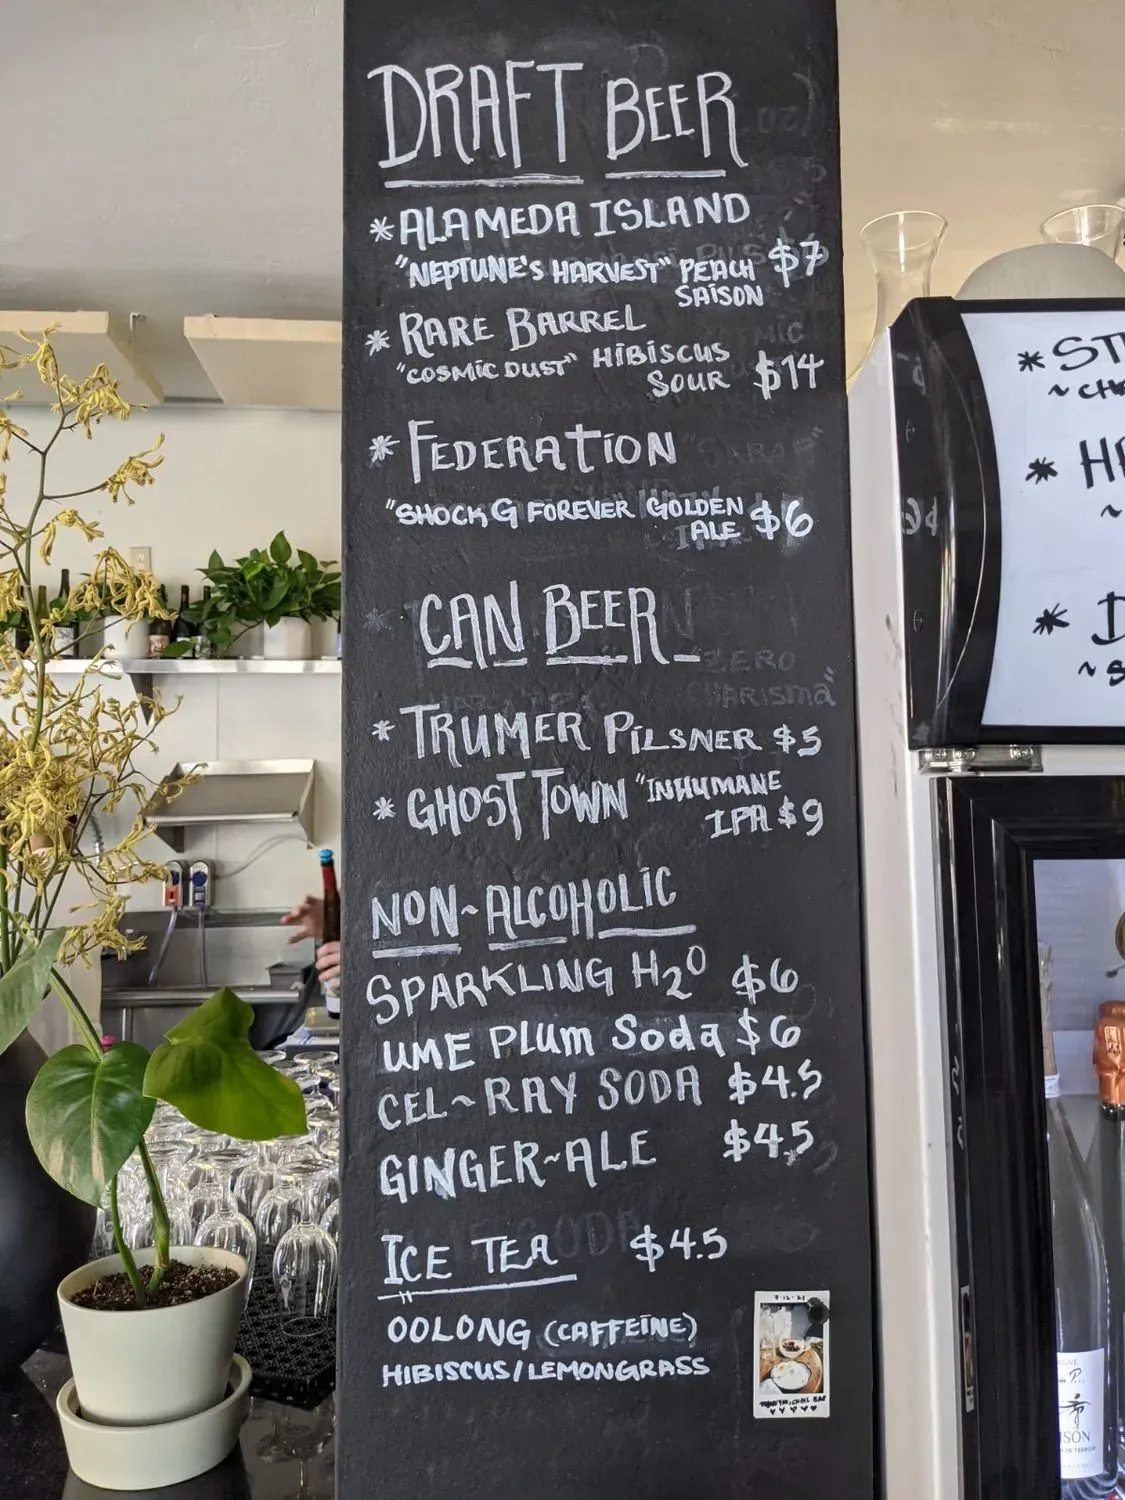 DRAFT BEER
* ALAMEDA ISLAND
"NEPTUNE'S HARVEST" PEACH $7
SAISON
* RARE BARREL
"COSMIC DUST" HIBISCUS
SOUR $14
* FEDERATION
"SHOCK G FOREVER" GOLDEN
ALE $6
CAN BEER
ZERO
CHARISMA"
* TRUMER PILSNER $5
* GHOST TOWN "INHUMANE
IPA $9
NON~ALCOHOLIC
SPARKLING H2O $6
UME PLUM SODA $6
CEL~RAY SODA $4.5
GINGER~ALE $4.5
ICE TEA $4.5
OOLONG (CAFFEINE)
HIBISCUS/LEMONGRASS
* ST
* H
* D